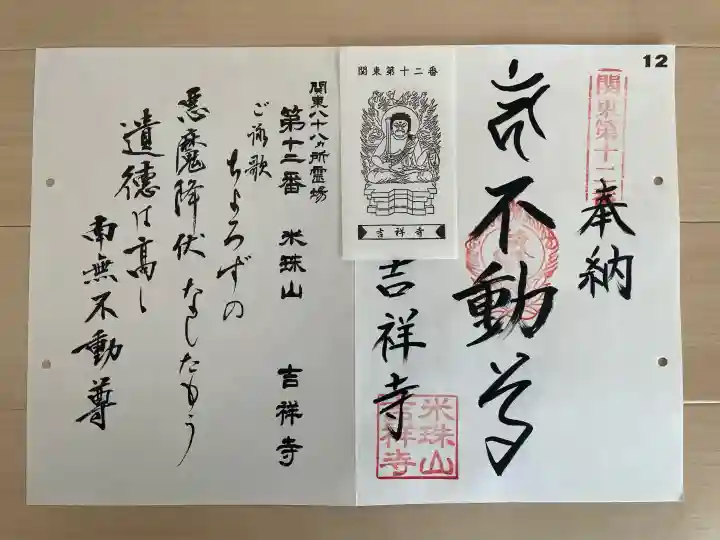 12
関東第十二
奉納
不動尊
吉祥寺
米珠山
吉祥寺
関東第十二番
吉祥寺
関東八十八ヵ所霊場
第十二番 米珠山 吉祥寺
ご詠歌
ちよろずの
悪魔降伏なしたもう
遺徳は高し
南無不動尊